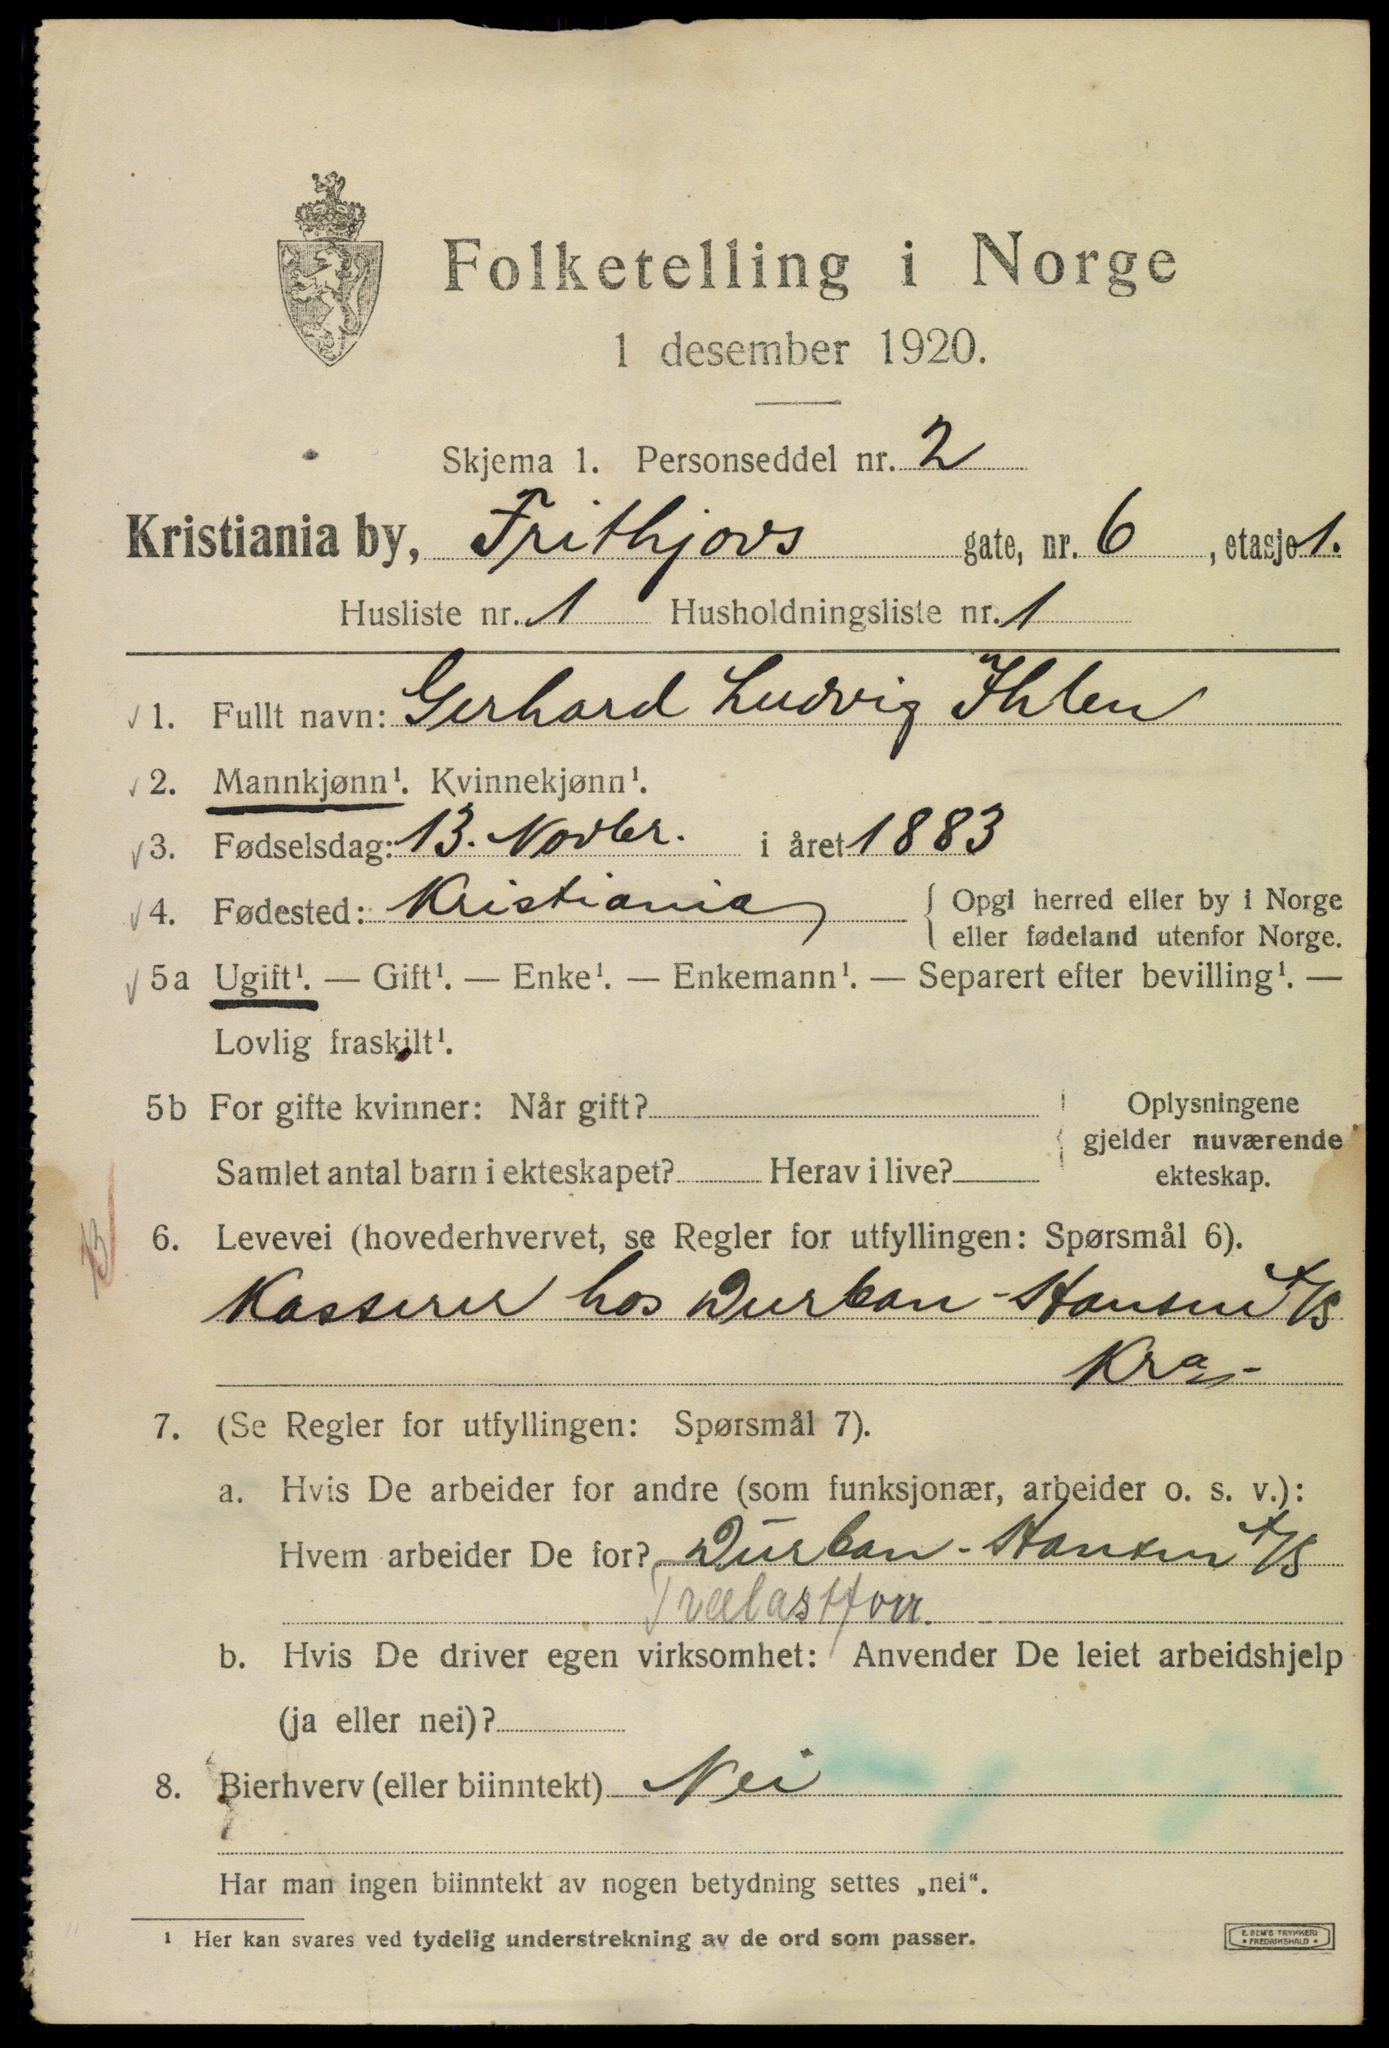 Folketelling i Norge
1 desember 1920.
Skjema 1. Personseddel nr. 2
Kristiania by, Frithjovs gate, nr. 6, etasje 1.
Husliste nr. 1 Husholdningsliste nr. 1
1. Fullt navn: Gerhard Ludvig Ihlen
2. Mannkjønn¹. Kvinnekjønn¹.
3. Fødselsdag: 13. Novbr. i året 1883
4. Fødested: Kristiania { Opgi herred eller by i Norge
eller fødeland utenfor Norge.
5a Ugift¹. — Gift¹. — Enke¹. — Enkemann¹. — Separert efter bevilling¹. —
Lovlig fraskilt¹.
5b For gifte kvinner: Når gift? Oplysningene
gjelder nuværende
Samlet antal barn i ekteskapet? Herav i live? ekteskap.
6. Levevei (hovederhvervet, se Regler for utfyllingen: Spørsmål 6).
Kasserer hos Durban-Hansen A/S
Kra.
7. (Se Regler for utfyllingen: Spørsmål 7).
a. Hvis De arbeider for andre (som funksjonær, arbeider o. s. v.):
Hvem arbeider De for? Durban-Hansen A/S
Trælastforr.
b. Hvis De driver egen virksomhet: Anvender De leiet arbeidshjelp
(ja eller nei)?
8. Bierhverv (eller biinntekt) Nei
Har man ingen biinntekt av nogen betydning settes „nei“.
¹ Her kan svares ved tydelig understrekning av de ord som passer.
E. SEM'S TRYKKERI
* FREDRIKSHALD *